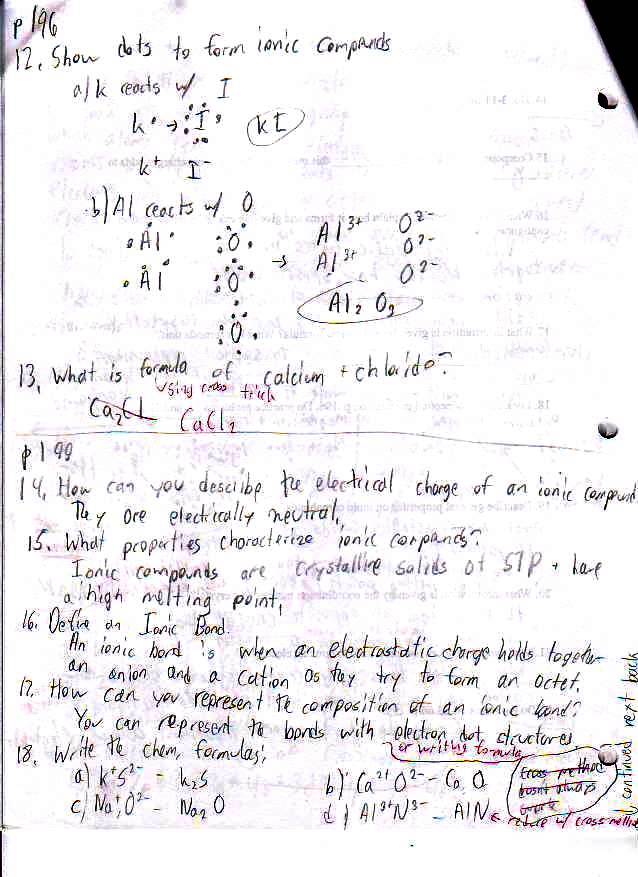 p 196
12. Show dots to form ionic compounds
a) K reacts w/ I
K• → I KI
K⁺ I⁻
b) Al reacts w/ O
Al O → Al³⁺ O²⁻
Al O Al³⁺ O²⁻
O O²⁻
Al₂O₃
13. What is formula of calcium + chloride?
using cross trick
Ca₂Cl CaCl₂
p199
14. How can you describe the electrical charge of an ionic compound
They are electrically neutral.
15. What properties characterize ionic compounds?
Ionic compounds are crystalline solids at STP + have
a high melting point.
16. Define an Ionic Bond.
An ionic bond is when an electrostatic charge holds together
an anion and a cation as they try to form an octet.
17. How can you represent the composition of an ionic bond?
You can represent the bonds with electron dot structures
or writing formula
18. Write the chem. formulas:
a) K⁺S²⁻ - K₂S b) Ca²⁺O²⁻ - CaO
c) Na⁺O²⁻ - Na₂O d) Al³⁺N³⁻ - AlN ← reduce w/ cross method
cross method
doesn't always
work
continued next back